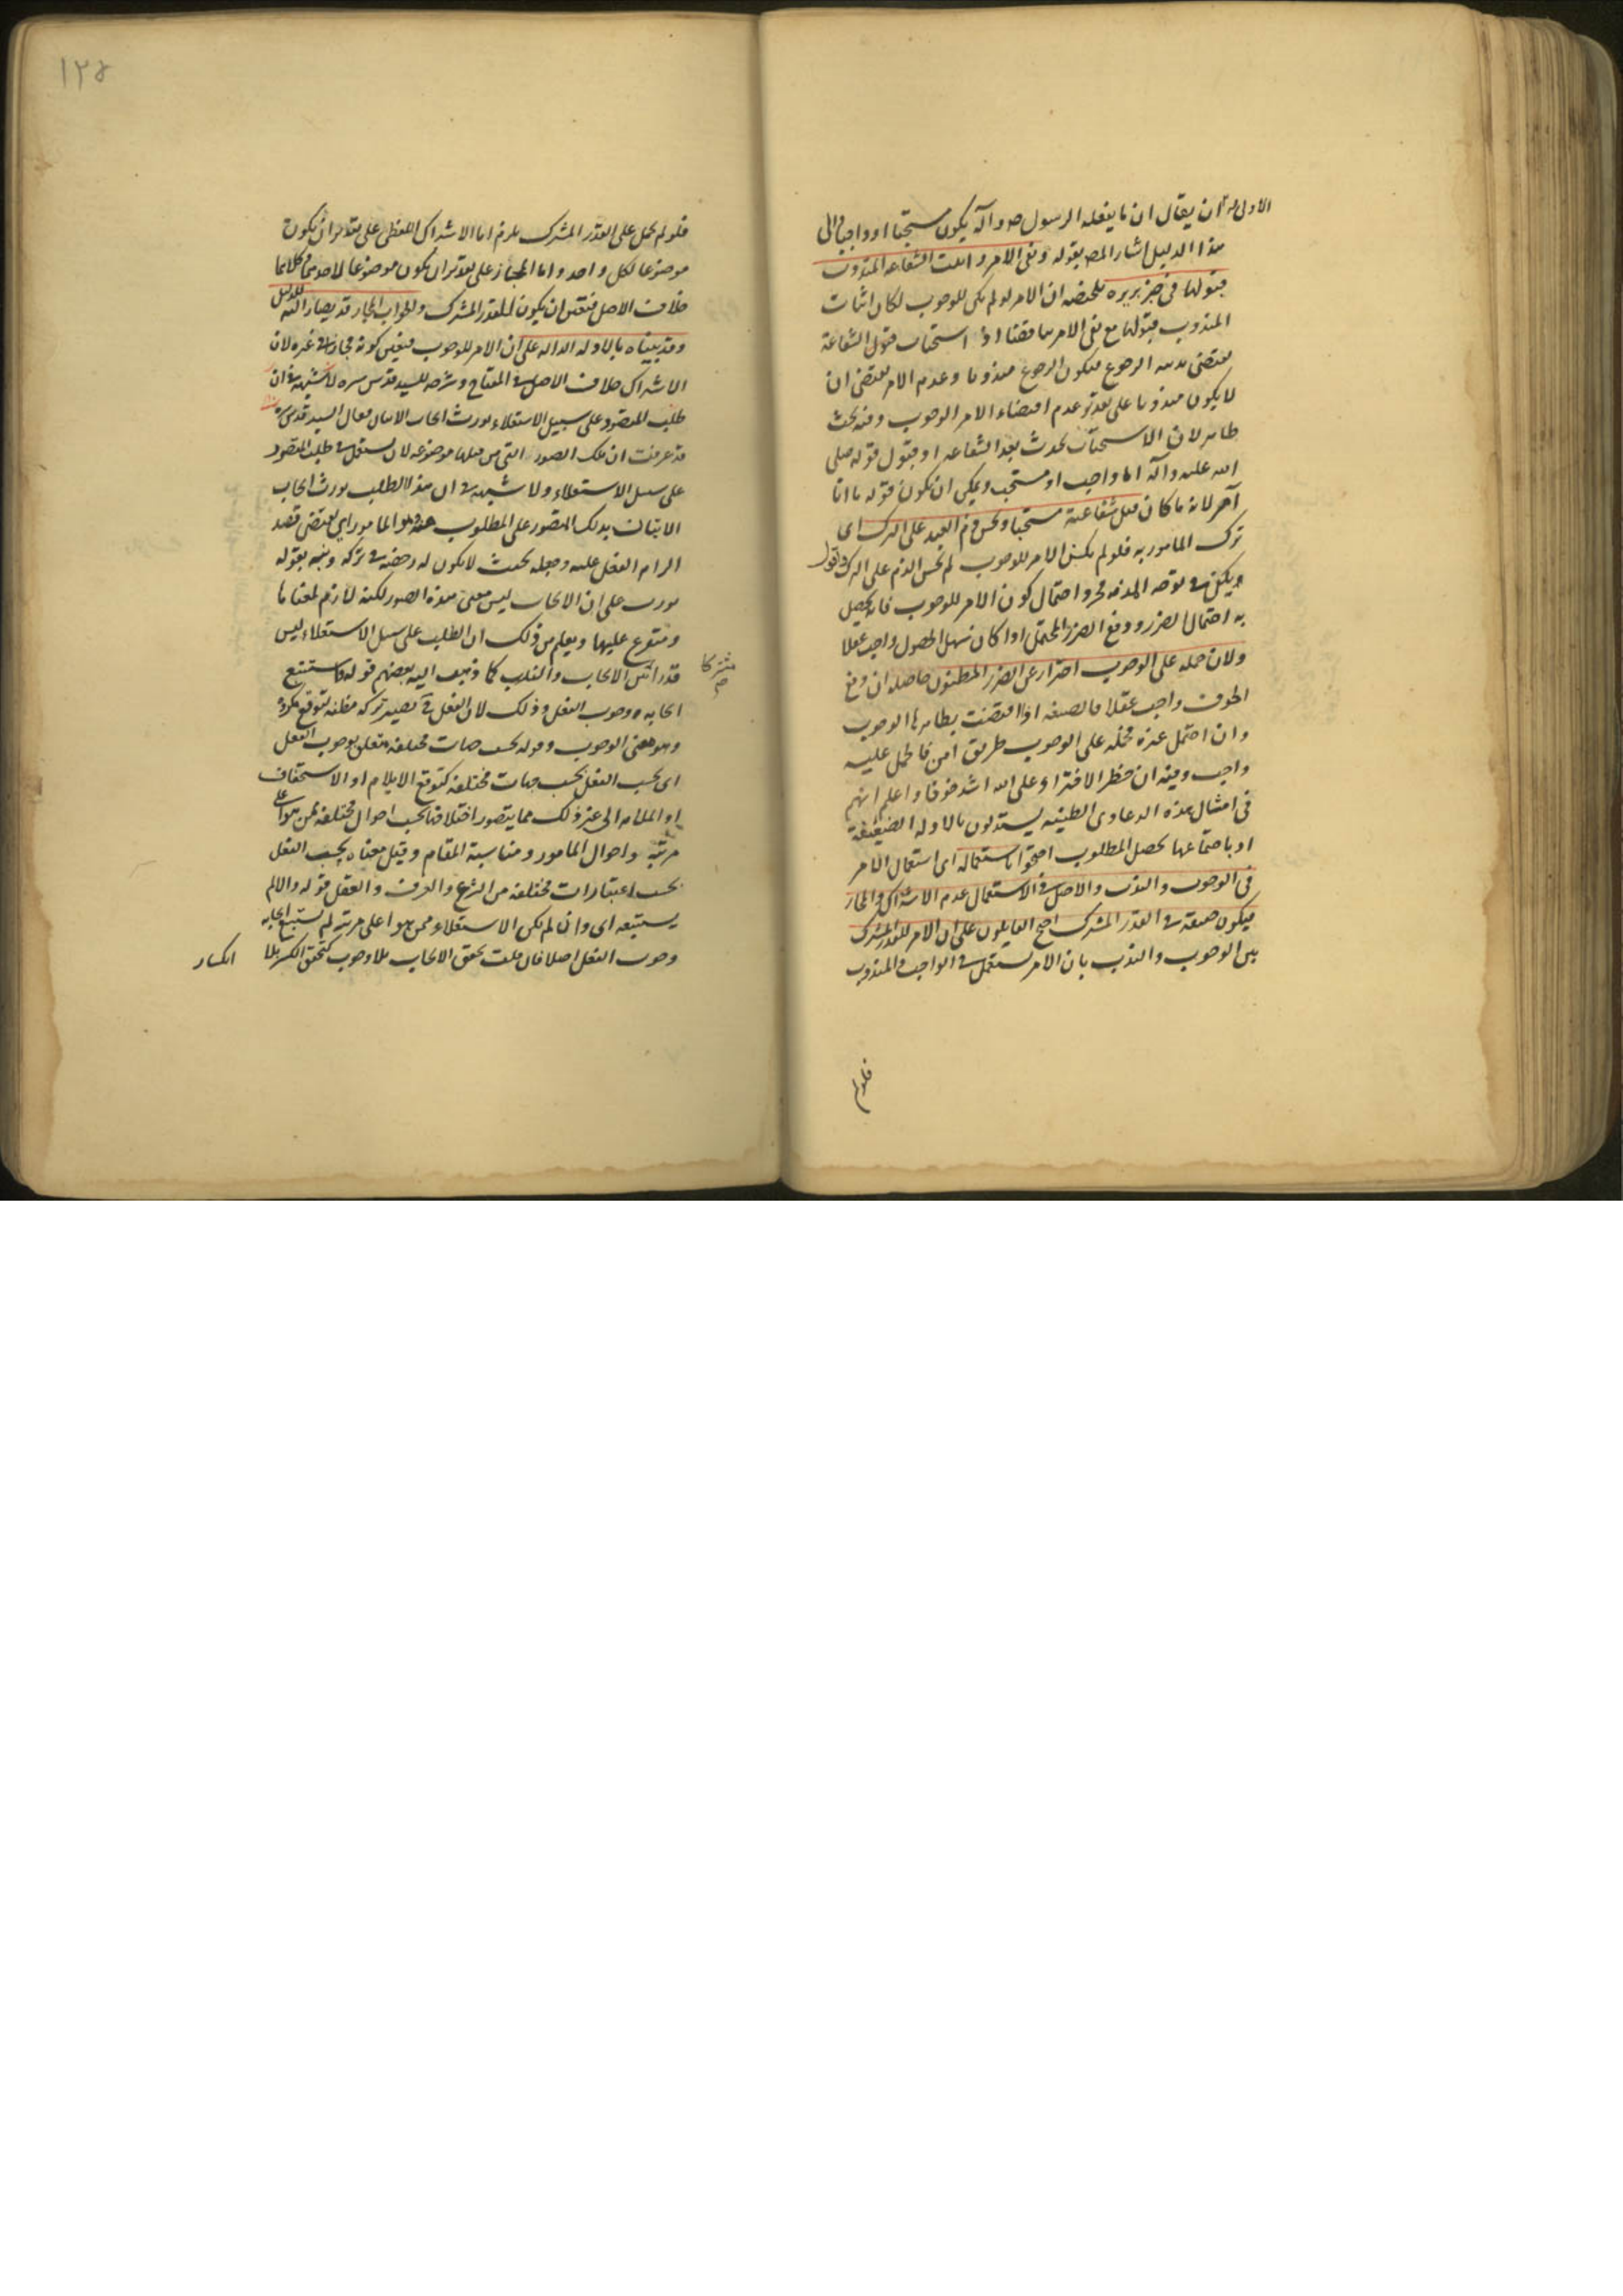 الاولى منه ان يقال ان ما يفعله الرسول ص وآله يكون مستحبا او واجبا والى
هذا الدليل اشار المص بقوله ونفى الامر واثبت الشفاعه المندوب
قبولها فى خبر بريره تلخيصه ان الامر لو لم يكن للوجوب لكان اثبات
المندوب قبولها مع نفى الامر متناقضا اذ استحباب قبول الشفاعة
يقتضى ندبيه الرجوع فيكون الرجوع مندوبا وعدم الامر يقتضى ان
لا يكون مندوبا على تقدير عدم اقتضاء الامر الوجوب وفيه بحث
ظاهر لان الاستحباب يحدث بعد الشفاعه او قبول قوله صلى
الله عليه وآله اما واجب او مستحب ويمكن ان يكون قوله ما انا
آمر لانه ما كان قبل شفاعته مستحبا ويحسن ذم العبد على الترك اى
ترك المامور به فلو لم يكن الامر للوجوب لم يحسن الذم على الترك
ويكفى فى توجه المذمه مجرد احتمال كون الامر للوجوب فانه يحصل
به احتمال الضرر ودفع الضرر المحتمل اذا كان سهل الحصول واجب عقلا
ولان حمله على الوجوب احتراز عن الضرر المظنون حاصله ان دفع
الخوف واجب عقلا فالصيغه اذا اقتضت بظاهرها الوجوب
وان احتمل غيره فحمله على الوجوب طريق امن فالحمل عليه
واجب وفيه ان خطر الافتراء على الله اشد خوفا واعلم انهم
فى امثال هذه الدعاوى الظنيه يستدلون بالادله الضعيفة
اذ باجتماعها يحصل المطلوب احتجوا باستعماله اى استعمال الامر
فى الوجوب والندب والاصل فى الاستعمال عدم الاشتراك والمجاز
فيكون حقيقه فى القدر المشترك احتج القايلون على ان الامر للقدر المشترك
بين الوجوب والندب بان الامر يستعمل فى الواجب والمندوب
فلو لم
١٢٥
فلو لم يحمل على القدر المشترك يلزم اما الاشتراك اللفظى على تقدير ان يكون
موضوعا لكل واحد واما المجاز على تقدير ان يكون موضوعا لاحدهما وكلاهما
خلاف الاصل فتعين ان يكون للقدر المشترك والجواب المجاز قد يصار اليه للدليل
وقد بيناه بالادله الداله على ان الامر للوجوب فيتعين كونه مجازا فى غيره لان
الاشتراك خلاف الاصل فى المفتاح وشرحه للسيد قدس سره لا شبهة فى ان
طلب المتصور على سبيل الاستعلاء يورث ايجاب الاتيان فقال السيد قدس سره
قد عرفت ان تلك الصور التى من قبلها موضوعه لان يستعمل فى طلب المتصور
على سبيل الاستعلاء ولا شبهه فى ان هذا الطلب يورث ايجاب
الاتيان بذلك المتصور على المطلوب منه وهو المامور اى يقتضى قصد
الزام الفعل عليه وجعله بحيث لا يكون له رخصه فى تركه ونبه بقوله
يورث على ان الايجاب ليس معنى هذه الصور لكنه لازم لمعناها
ومتفرع عليها ويعلم من ذلك ان الطلب على سبيل الاستعلاء ليس
قدرا بين الايجاب والندب كما ذهب اليه بعضهم قوله فاستتبع
مشتركا
صح
ايجابه وجوب الفعل وذلك لان الفعل ح يصير تركه مظنه لتوقع مكروه
وهو معنى الوجوب وقوله بحسب جهات مختلفه متعلق بوجوب الفعل
اى يجب الفعل بحسب جهات مختلفه كتوقع الايلام او الاستخفاف
او الملامه الى غير ذلك مما يتصور اختلافها بحسب احوال مختلفه لمن هو اعلى
مرتبه واحوال المامور ومناسبة المقام وقيل معناه يجب الفعل
بحسب اعتبارات مختلفه من الشرع والعرف والعقل قوله والا لم
يستتبعه اى وان لم يكن الاستعلاء ممن هو اعلى مرتبه لم يستتبع ايجابه
وجوب الفعل اصلا فان قلت تحقق الايجاب بلا وجوب كتحقق الكسر بلا
انكسار